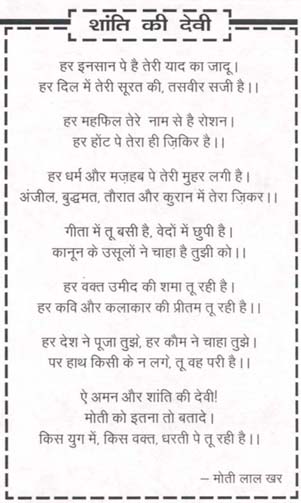 शांति की देवी
हर इनसान पे है तेरी याद का जादू।
हर दिल में तेरी सूरत की, तसवीर सजी है।।
हर महफिल तेरे नाम से है रोशन।
हर होंट पे तेरा ही ज़िकिर है।।
हर धर्म और मज़हब पे तेरी मुहर लगी है।
अंजील, बुद्धमत, तौरात और कुरान में तेरा ज़िकर।।
गीता में तू बसी है, वेदों में छुपी है।
कानून के उसूलों ने चाहा है तुझी को।।
हर वक्त उमीद की शमा तू रही है।
हर कवि और कलाकार की प्रीतम तू रही है।।
हर देश ने पूजा तुझे, हर कौम ने चाहा तुझे।
पर हाथ किसी के न लगे, तू वह परी है।।
ऐ अमन और शांति की देवी!
मोती को इतना तो बतादे।
किस युग में, किस वक्त, धरती पे तू रही है।।
– मोती लाल खर